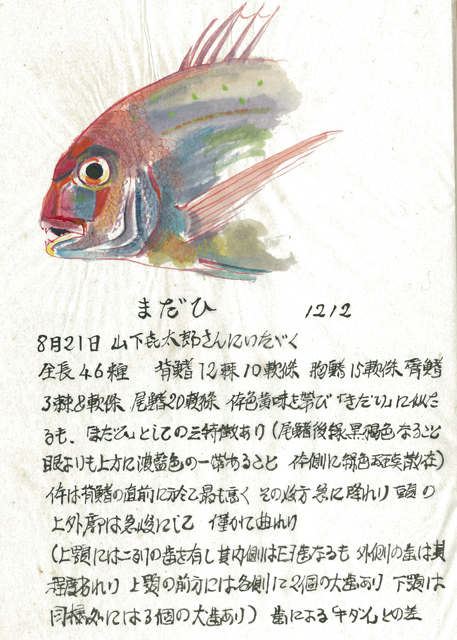 まだひ 1212
8月21日 山下㐂太郎さんにいたゞく
全長46糎 背鰭12棘10軟條 胸鰭15軟條 臀鰭
3棘8軟條 尾鰭20軟條 体色黄味を帯び「きだい」に似た
るも、「まだひ」としての三特徴あり(尾鰭後縁黒褐色なること
眼よりも上方に濃藍色の一帯あること 体側に緑色斑点散在)
体は背鰭の直前に於て最も高く その後方急に降れり 頭の
上外廓は急峻にして 僅かに曲れり
(上顎には二列の歯を有し其内側は臼歯なるも 外側の歯は其
程度あれり 上顎の前方には各側に2個の大歯あり 下顎は
同様 には3個の大歯あり) 歯による「キダイ」との差